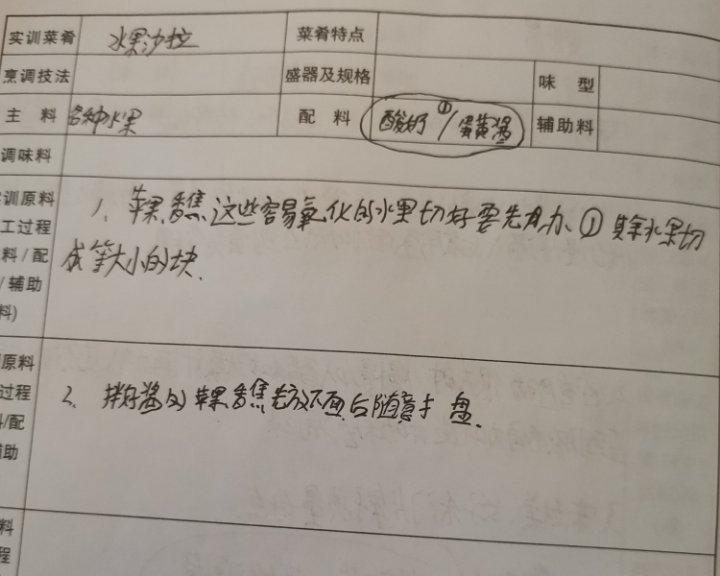 实训菜肴 水果沙拉 菜肴特点
烹调技法 盛器及规格 味 型
主 料 各种水果 配 料 酸奶①/蛋黄酱 辅助料
调味料
训原料
工过程
料/配
/辅助
料)
1、苹果香蕉这些容易氧化的水果切好要先加入①其余水果切
成等大小的块.
原料
过程
/配
助
2、拌好酱的苹果香蕉先放下面后随意 盘.
料
程